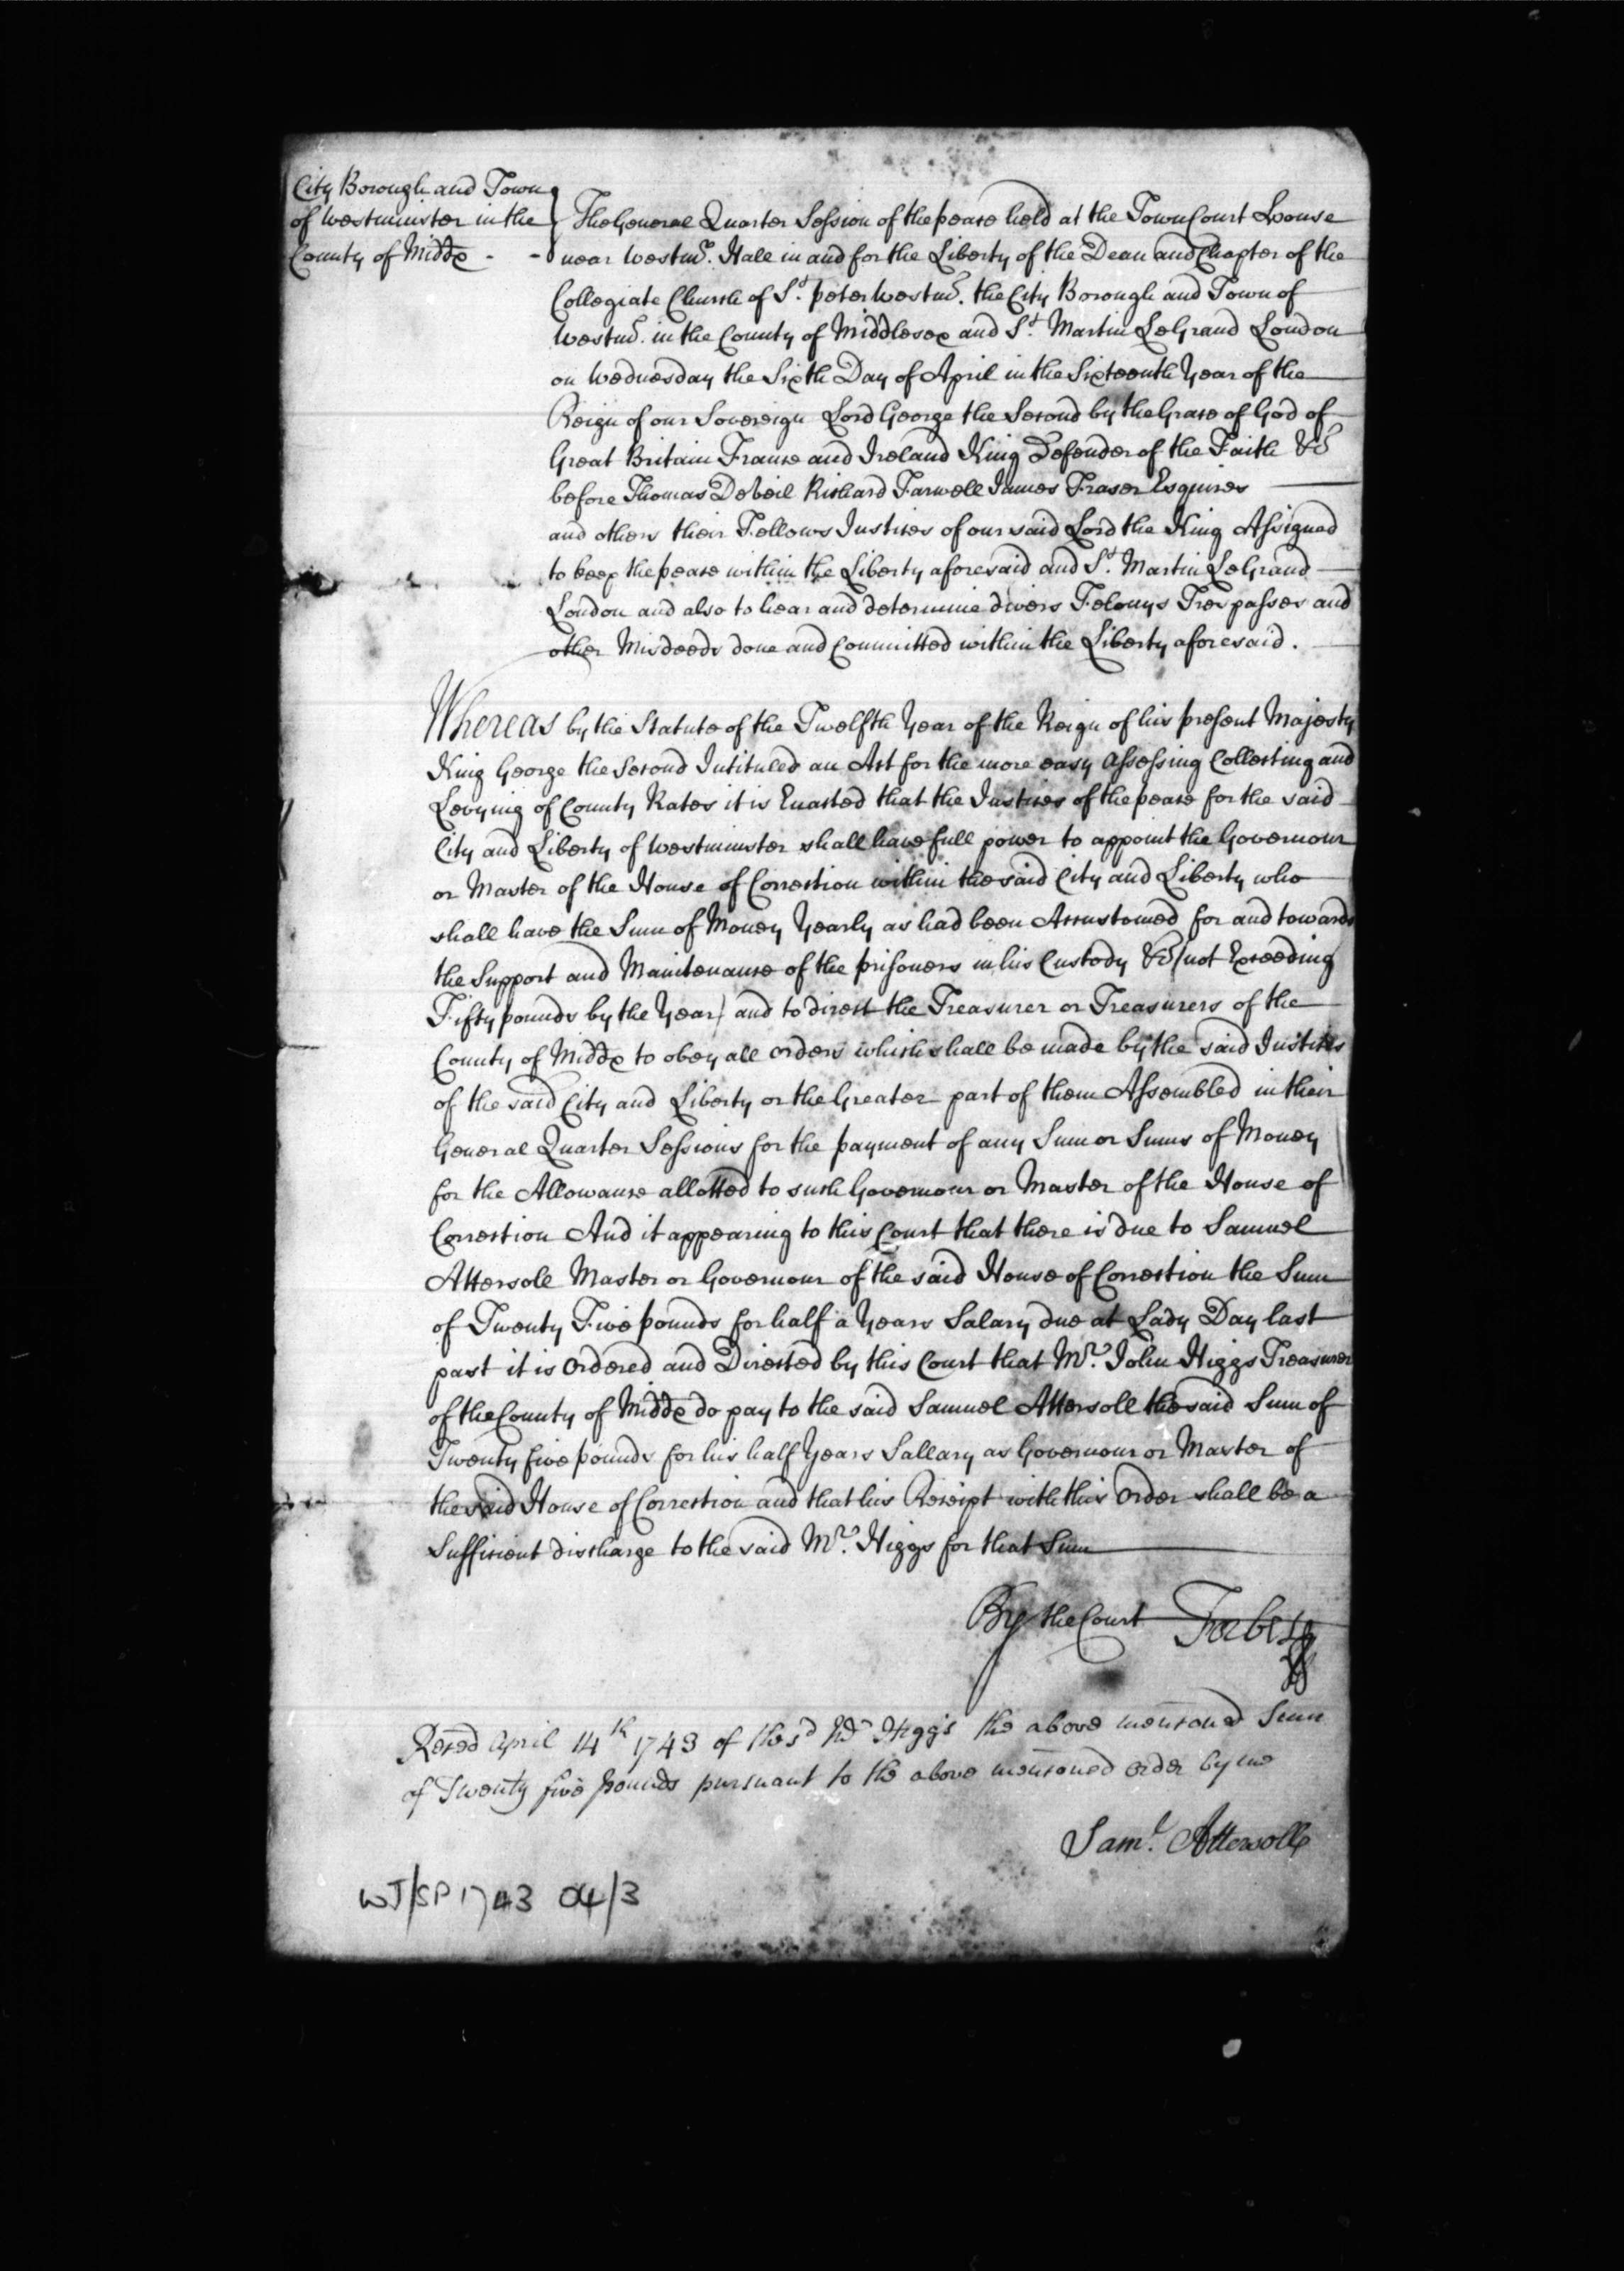 City Borough and Town
of Westminster in the
County of Middx - -
The General Quarter Session of the peace held at the Town Court House
near Westmr. Hall in and for the Liberty of the Dean and Chapter of the
Collegiate Church of St. peter Westmr. the City Borough and Town of
Westmr. in the County of Middlesex and St. Martin LeGrand London
on Wednesday the Sixth Day of April in the Sixteenth Year of the
Reign of our Sovereign Lord George the Second by the Grace of God of
Great Britain France and Ireland King Defender of the Faith &c
before Thomas Deveil Richard Farwell James Fraser Esquires
and others their Fellows Justices of our said Lord the King Assigned
to keep the peace within the Liberty aforesaid and St. Martin LeGrand
London and also to hear and determine divers Felonys Trespasses and
other Misdeeds done and Committed within the Liberty aforesaid.
Whereas by the Statute of the Twelfth Year of the Reign of his present Majesty
King George the Second Intituled an Act for the more easy Assessing Collecting and
Levying of County Rates it is Enacted that the Justices of the peace for the said
City and Liberty of Westminster shall have full power to appoint the Governour
or Master of the House of Correction within the said City and Liberty who
shall have the Sum of Money Yearly as had been Accustomed for and towards
the Support and Maintenance of the prisoners in his Custody &c (not Exceeding
Fifty pounds by the Year) and to direct the Treasurer or Treasurers of the
County of Middx to obey all orders which shall be made by the said Justices
of the said City and Liberty or the Greater part of them Assembled in their
General Quarter Sessions for the payment of any Sum or Sums of Money
for the Allowance allotted to such Governour or Master of the House of
Correction And it appearing to this Court that there is due to Samuel
Attersole Master or Governour of the said House of Correction the Sum
of Twenty Five pounds for half a Years Salary due at Lady Day last
past it is Ordered and Directed by this Court that Mr. John Higgs Treasurer
of the County of Middx do pay to the said Samuel Attersoll the said Sum of
Twenty five pounds for his half Years Sallary as Governour or Master of
the said House of Correction and that his Receipt with this Order shall be a
Sufficient discharge to the said Mr. Higgs for that Sum
By the Court Forbes
Reced April 14th 1743 of the sd Mr Higgs the above mentoned Sum
of Twenty five pounds pursuant to the above mentoned order by me
Saml. Attersolle
WJ/SP 1743 04/3